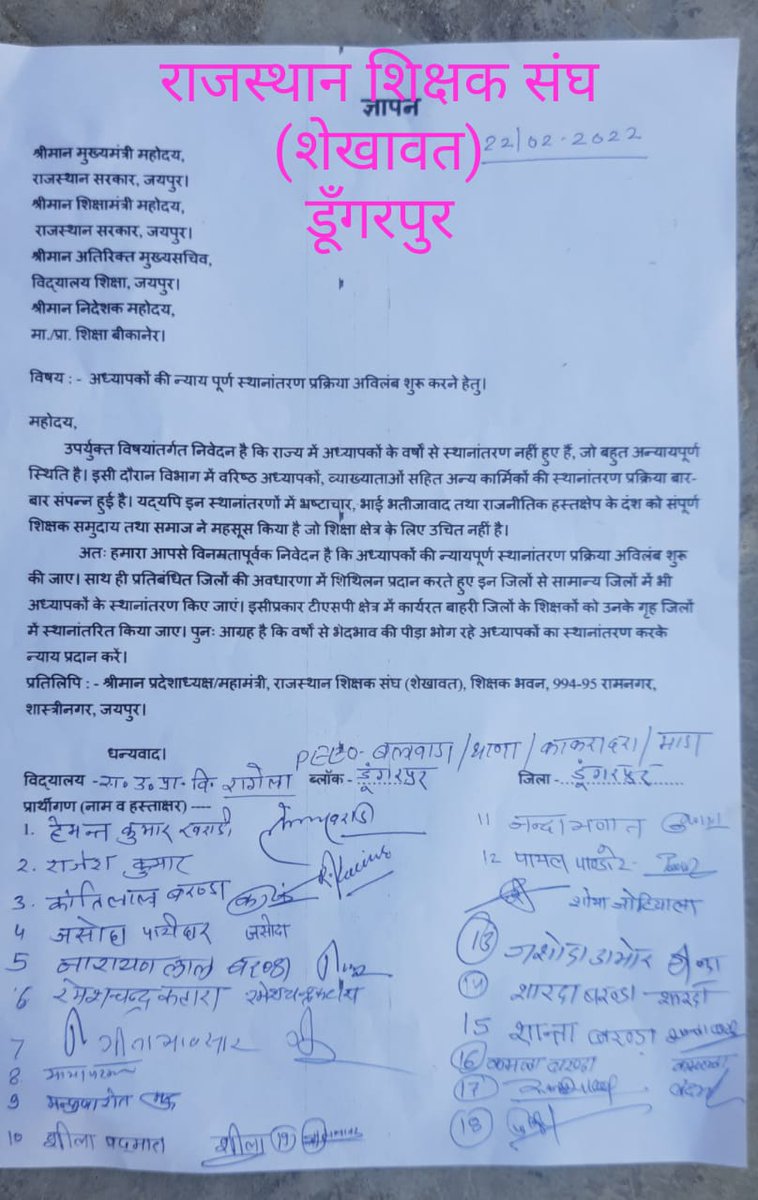 राजस्थान शिक्षक संघ
(शेखावत)
डूँगरपुर
ज्ञापन
22/02-2022
श्रीमान मुख्यमंत्री महोदय,
राजस्थान सरकार, जयपुर।
श्रीमान शिक्षामंत्री महोदय,
राजस्थान सरकार, जयपुर।
श्रीमान अतिरिक्त मुख्यसचिव,
विद्यालय शिक्षा, जयपुर।
श्रीमान निदेशक महोदय,
मा./प्रा. शिक्षा बीकानेर।
विषय : - अध्यापकों की न्याय पूर्ण स्थानांतरण प्रक्रिया अविलंब शुरू करने हेतु।
महोदय,
उपर्युक्त विषयांतर्गत निवेदन है कि राज्य में अध्यापकों के वर्षों से स्थानांतरण नहीं हुए हैं, जो बहुत अन्यायपूर्ण
स्थिति है। इसी दौरान विभाग में वरिष्ठ अध्यापकों, व्याख्याताओं सहित अन्य कार्मिकों की स्थानांतरण प्रक्रिया बार-
बार संपन्न हुई है। यद्यपि इन स्थानांतरणों में भ्रष्टाचार, भाई भतीजावाद तथा राजनीतिक हस्तक्षेप के दंश को संपूर्ण
शिक्षक समुदाय तथा समाज ने महसूस किया है जो शिक्षा क्षेत्र के लिए उचित नहीं है।
अतः हमारा आपसे विनम्रतापूर्वक निवेदन है कि अध्यापकों की न्यायपूर्ण स्थानांतरण प्रक्रिया अविलंब शुरू
की जाए। साथ ही प्रतिबंधित जिलों की अवधारणा में शिथिलन प्रदान करते हुए इन जिलों से सामान्य जिलों में भी
अध्यापकों के स्थानांतरण किए जाएं। इसीप्रकार टीएसपी क्षेत्र में कार्यरत बाहरी जिलों के शिक्षकों को उनके गृह जिलों
में स्थानांतरित किया जाए। पुनः आग्रह है कि वर्षों से भेदभाव की पीड़ा भोग रहे अध्यापकों का स्थानांतरण करके
न्याय प्रदान करें।
प्रतिलिपि : - श्रीमान प्रदेशाध्यक्ष/महामंत्री, राजस्थान शिक्षक संघ (शेखावत), शिक्षक भवन, 994-95 रामनगर,
शास्त्रीनगर, जयपुर।
धन्यवाद।
PEEO- / थाणा / काकरादरा / माडा
विद्यालय -रा. उ. प्रा. वि. रागेला ब्लॉक- डूंगरपुर जिला - डूंगरपुर
प्रार्थीगण (नाम व हस्ताक्षर) ----
1. हेमन्त कुमार खराडी
2. राजेश कुमार
3. कांतिलाल बरण्डा
4 जसोदा पाटीदार जसोदा
5 नारायण लाल बरण्डा
6 रमेशचन्द्र कटारा
7 गीता भावसार
8
9
10 शीला शीला 19
11 नन्दा भगात
12 पायल पाण्डोर
शोभा
13 जशोदा डामोर
14 शारदा बरण्डा शारदा
15 शान्ता बरण्डा
16 कमला बरण्डा कमला
17
18